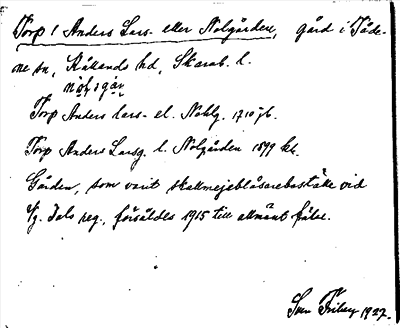 Torp 1 Anders Lars- eller Nolgården, gård i Fåde-
ne sn, Kåkands hd, Skarab. l.
nòḷsgạ̊ṇ
Torp Anders Lars- el. Nohlg. 1710 jb.
Torp Anders Larsg. l. Nolgården 1899 kt.
Gården, som varit skallmejeblåsareboställe vid
Vg. Dals reg., försåldes 1915 till allmänt
Sven 1927.